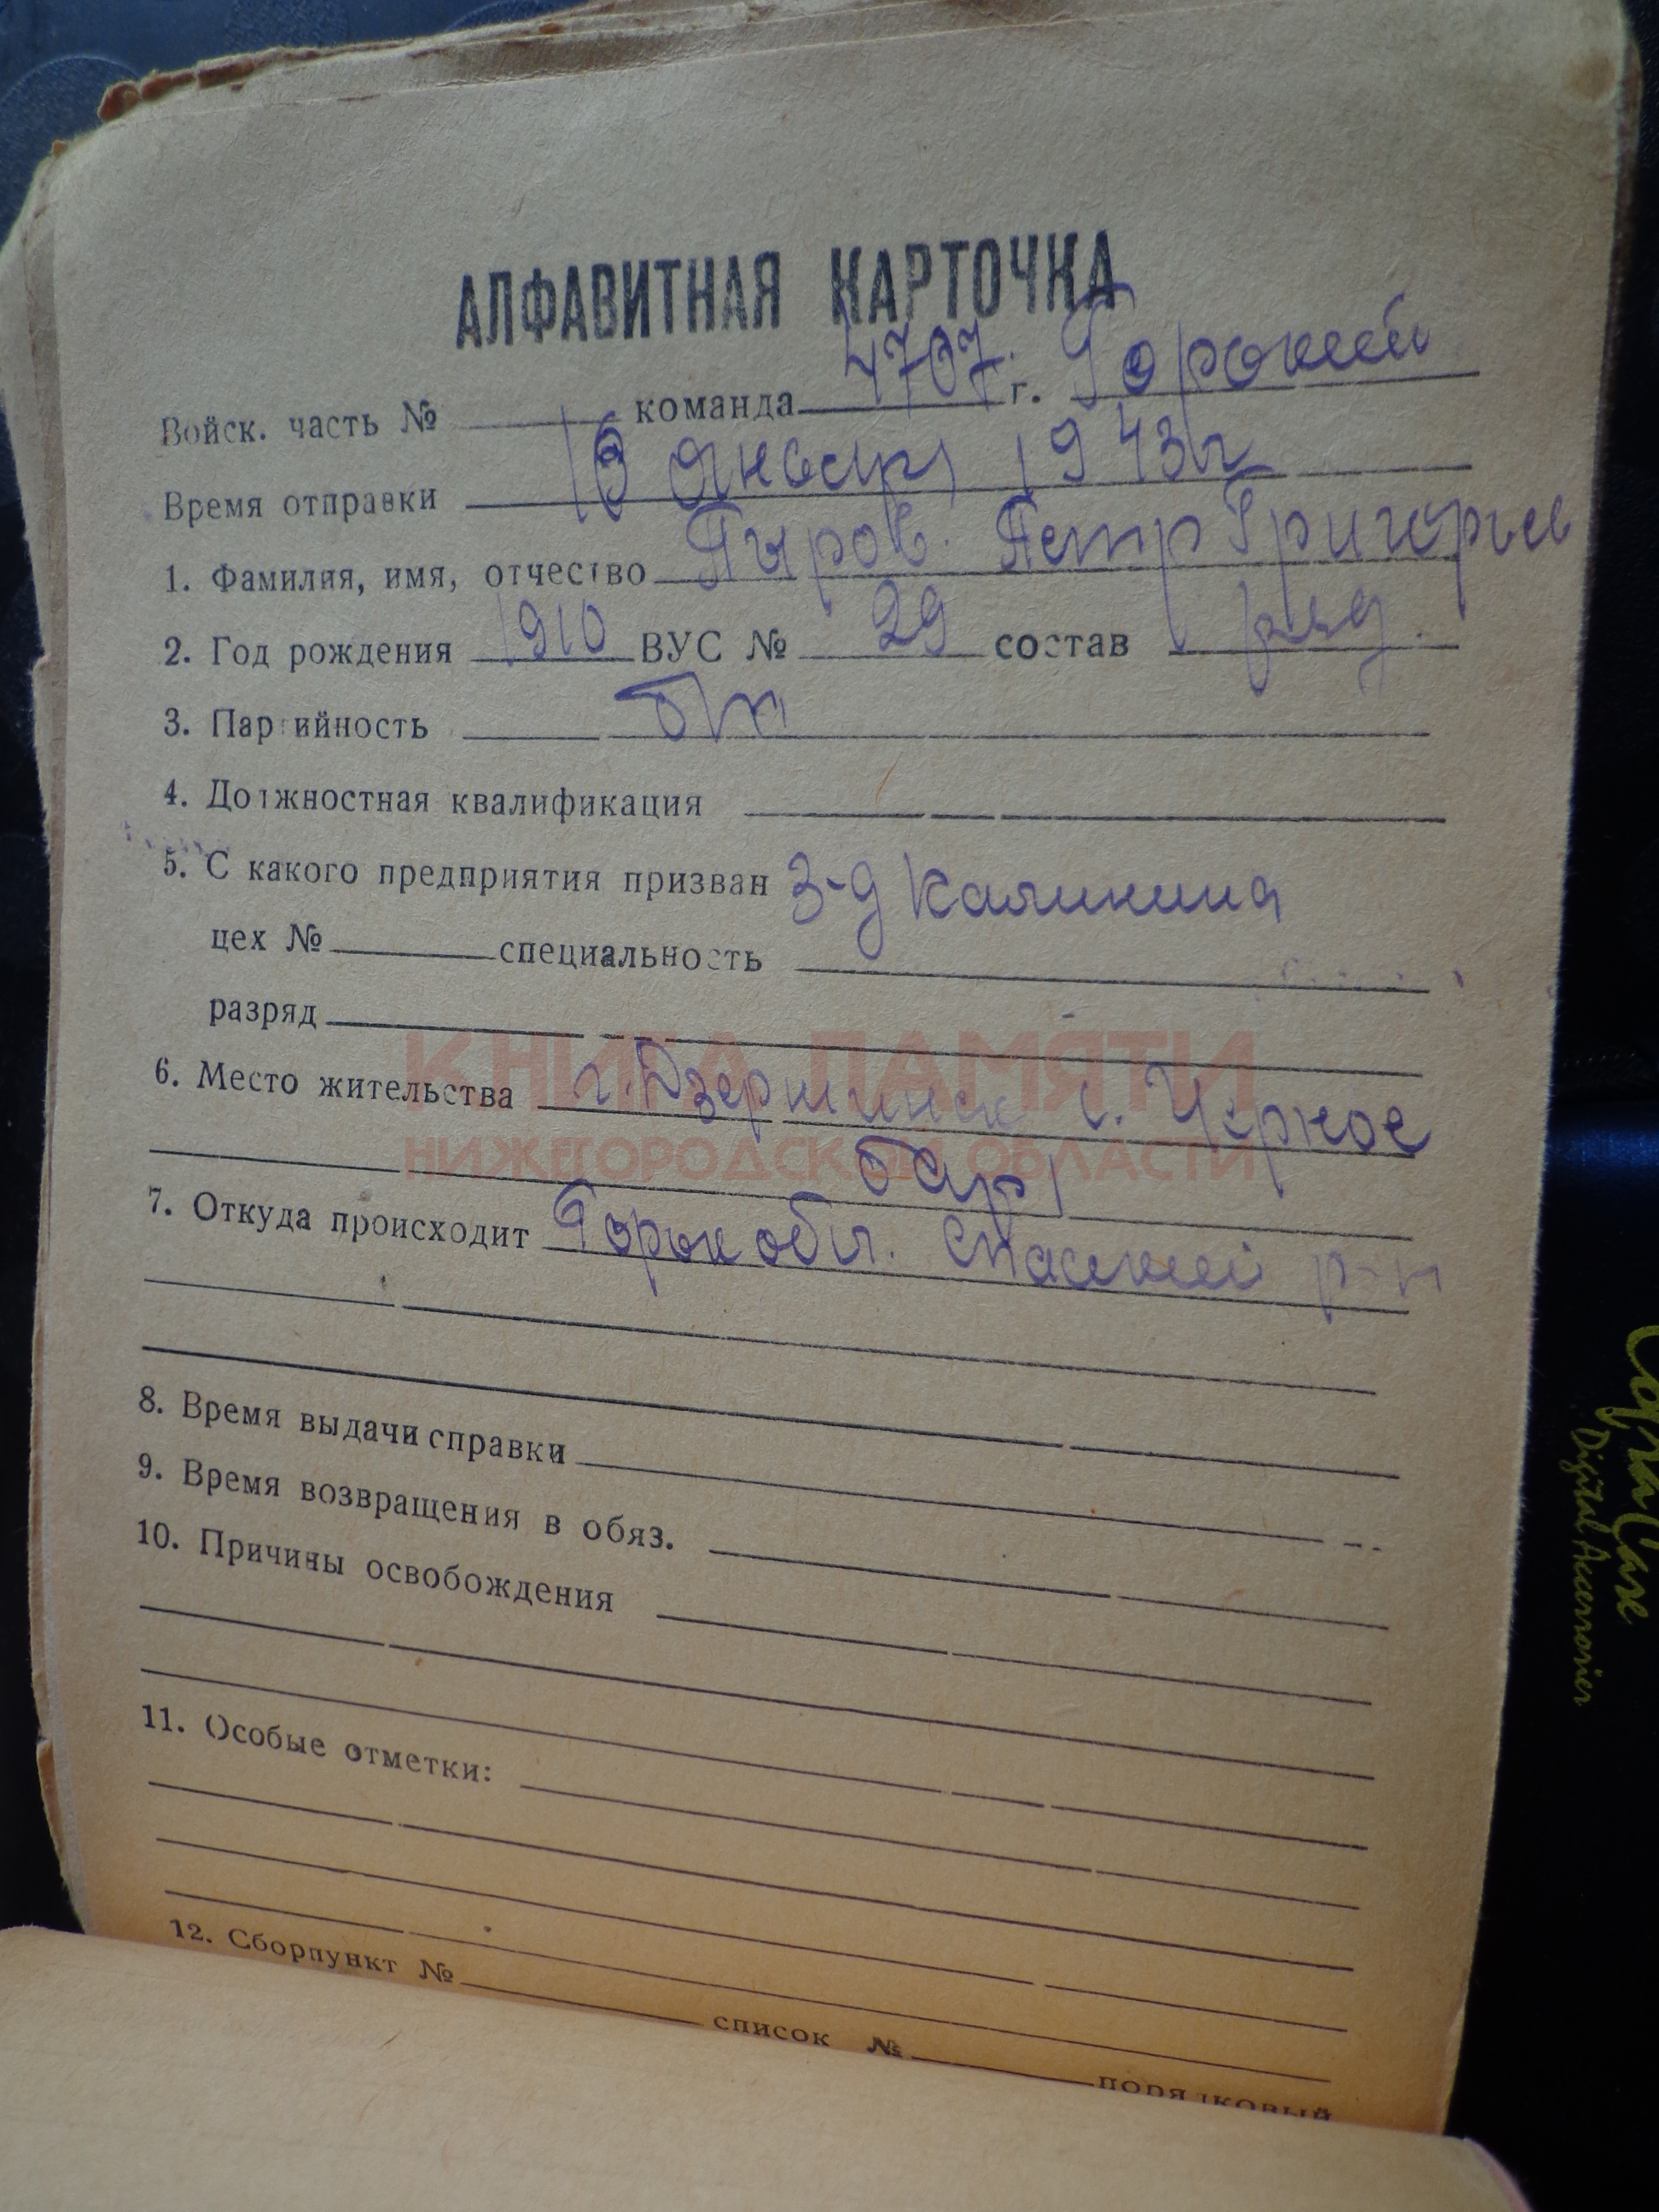 АЛФАВИТНАЯ КАРТОЧКА
Войск. часть № команда 4707. г. Горький
Время отправки 16 января 1943 г
1. Фамилия, имя, отчество Пыров. Петр Григорьев
2. Год рождения 1910 ВУС № 29 состав ряд.
3. Партийность б/п
4. Должностная квалификация
5. С какого предприятия призван З-д Калинина
цех № специальность
разряд
КНИГА ПАМЯТИ
6. Место жительства г. Дзержинск с. Черное
НИЖЕГОРОДСКОЙ ОБЛАСТИ
7. Откуда происходит Горьк обл. Спаский р-н
8. Время выдачи справки
9. Время возвращения в обяз.
10. Причины освобождения
11. Особые отметки:
12. Сборпункт № список № порядковый
Digital Accessories